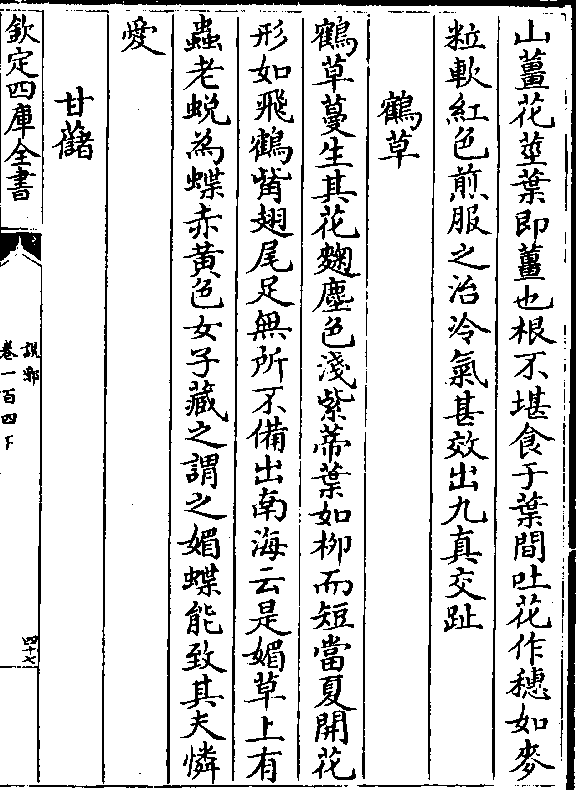 山薑花莖葉即薑也根不堪食于葉間吐花作穗如麥
粒軟紅色煎服之治冷氣甚效出九真交趾
鶴草
鶴草蔓生其花麴塵色淺紫蒂葉如柳而短當夏開花
形如飛鶴觜翅尾足無所不備出南海云是媚草上有
蟲老蜕為蝶赤黃色女子藏之謂之媚蝶能致其夫憐
愛
甘藷
欽定四庫全書
說郛
卷一百四下
四十七